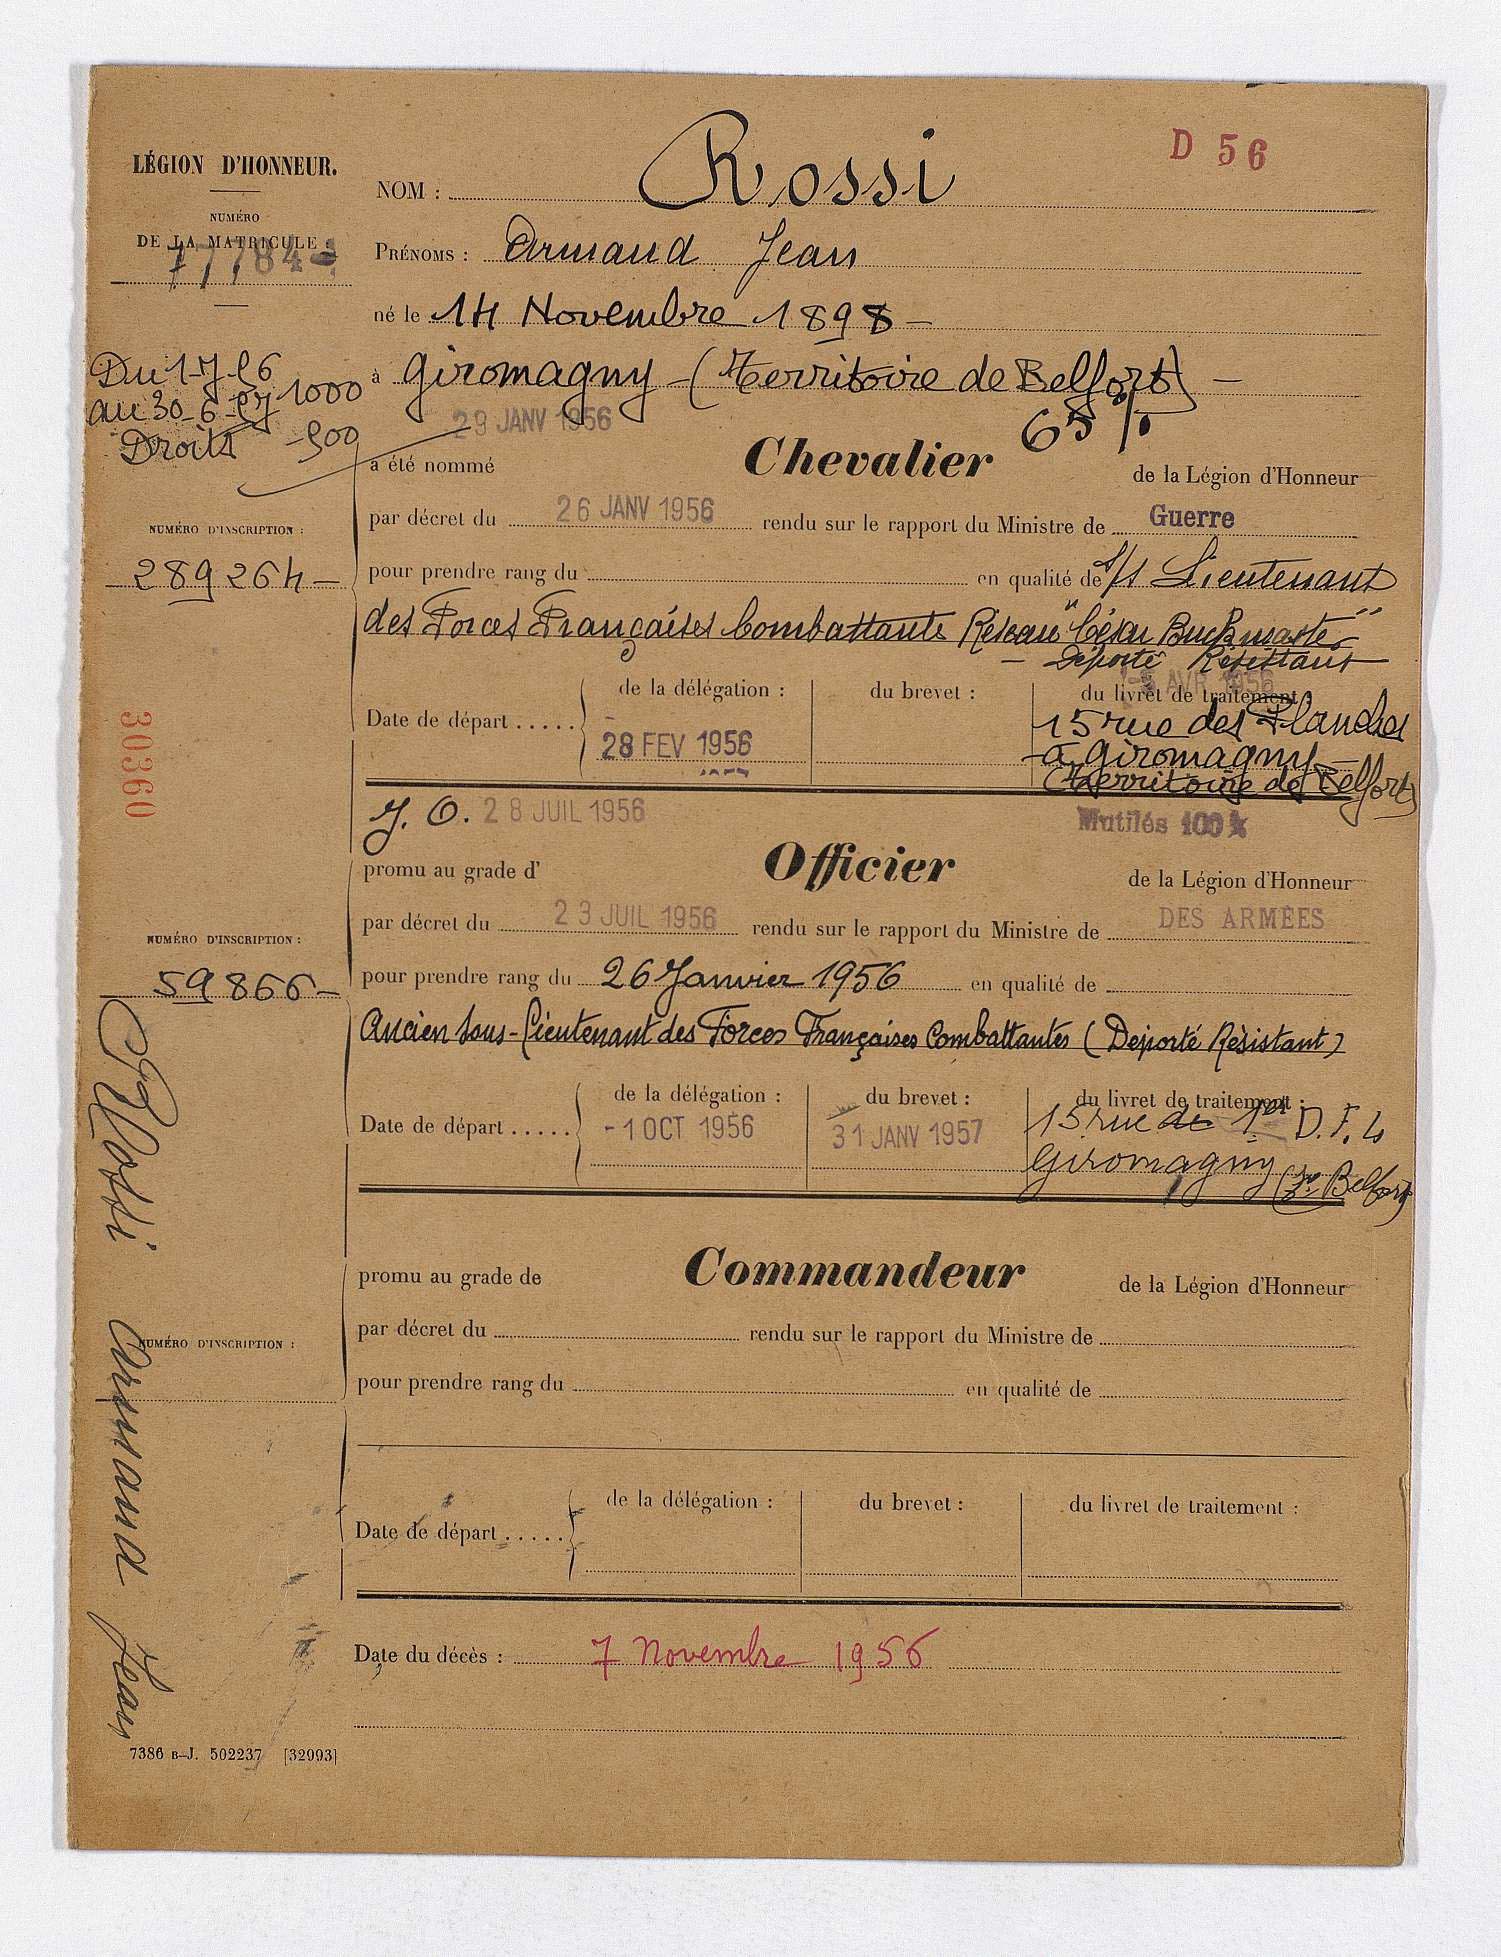 LÉGION D'HONNEUR.
NUMÉRO
DE LA MATRICULE :
D 56
NOM : Rossi
PRÉNOMS : Armand Jean
né le 14 Novembre 1898 -
à Giromagny - (Territoire de Belfort) -
Du 1-7-56
au 30-6-57 1000
Droits -500
29 JANV 1956
65 %
a été nommé Chevalier de la Légion d'Honneur
par décret du 26 JANV 1956 rendu sur le rapport du Ministre de Guerre
NUMÉRO D'INSCRIPTION :
289264 -
pour prendre rang du en qualité de s/s Lieutenant
des Forces Françaises Combattantes Réseau "César Buckmaster"
- Déporté Résistant
AVR 1956
Date de départ ..... de la délégation : du brevet : du livret de traitement :
28 FEV 1956
15 rue des Planches
à Giromagny -
(Territoire de Belfort)
30360
J. O. 28 JUIL 1956
Mutilés 100 %
promu au grade d' Officier de la Légion d'Honneur
par décret du 23 JUIL 1956 rendu sur le rapport du Ministre de DES ARMÉES
NUMÉRO D'INSCRIPTION :
59866 -
pour prendre rang du 26 Janvier 1956 en qualité de
Ancien Sous-Lieutenant des Forces Françaises Combattantes (Déporté Résistant)
Date de départ ..... de la délégation : du brevet : du livret de traitement :
-1 OCT 1956
31 JANV 1957
15 rue de 1er D.F.L
Giromagny (Tre Belfort)
promu au grade de Commandeur de la Légion d'Honneur
par décret du rendu sur le rapport du Ministre de
NUMÉRO D'INSCRIPTION :
pour prendre rang du en qualité de
Date de départ ..... de la délégation : du brevet : du livret de traitement :
Date du décès : 7 Novembre 1956
Rossi Armand Jean
7386 B-J. 502237 [32993]